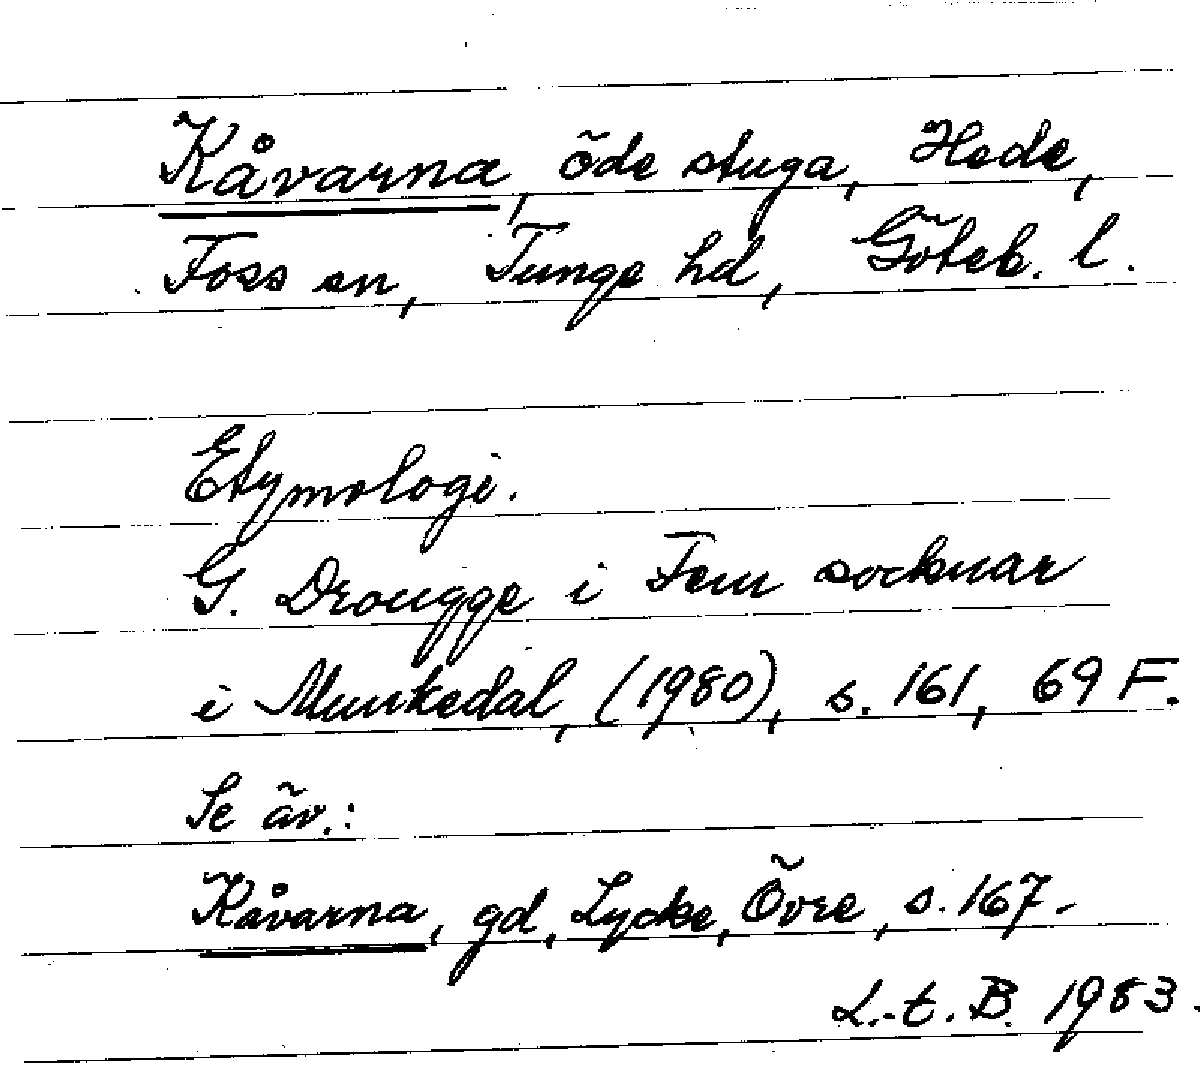 Kåvarna, öde stuga, Hede,
Foss sn, Tunge hd, Göteb. l.
Etymologi.
G. Drougge i Fem socknar
i Munkedal, (1980), s. 161, 69 F.
Se äv.:
Kåvarna, gd, Lycke, Övre, s. 167.
L.-t. B. 1983.